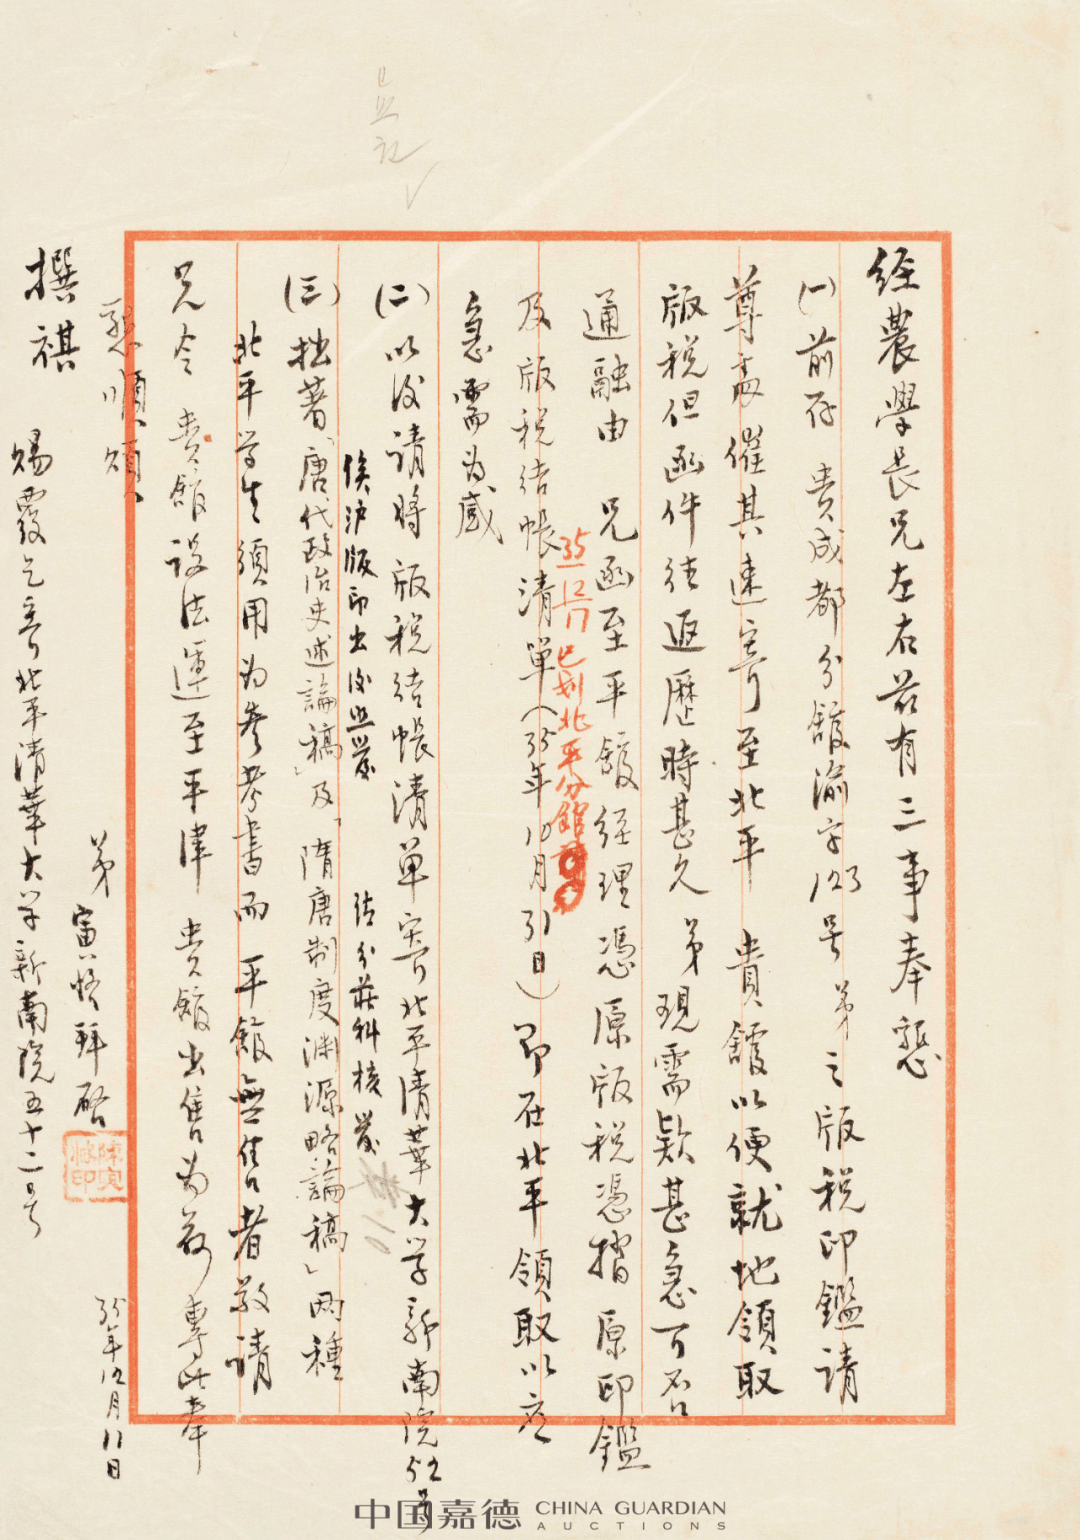 經農學長兄左右茲有三事奉懇
(一)前存 貴成都分館渝字123号弟之版稅印鑑請
尊處催其速寄至北平 貴館以便就地領取
版稅但函件往返歷時甚久 弟現需款甚急可否
通融由 兄函至平館經理憑原版稅憑摺原印鑑
35 12/17 已划北平分館
及版稅结帳清單(35年10月31日)即在北平領取以应
急需为感
(二)以後請將版稅结帳清單寄北平清華大学新南院52号
俟沪版印出後照發
請分莊科核發
(三)拙著「唐代政治史述論稿」及「隋唐制度淵源略論稿」两種
北平学生須用为參考書而平館無售者敬請
兄令 貴館設法運至平津 貴館出售为荷專此奉
懇順頌
撰祺
弟 寅恪拜啓
陳寅恪印
35年12月11日
賜覆乞寄北平清華大学新南院五十二号
中国嘉德 CHINA GUARDIAN AUCTIONS